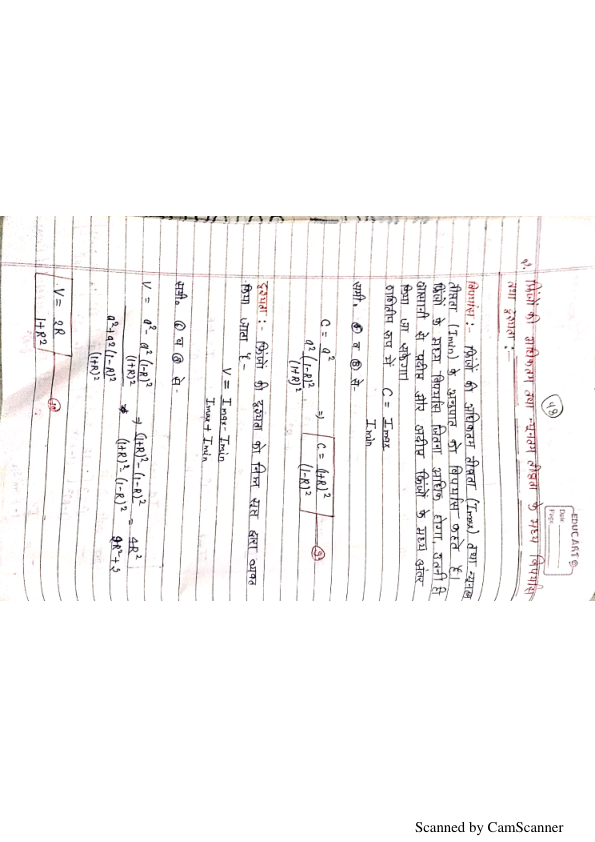 48
EDUCART
Date
Page
फ्रिंजों की अधिकतम तथा न्यूनतम तीव्रता के मध्य विपर्यास
तथा दृश्यता :-
विपर्यास :- फ्रिंजों की अधिकतम तीव्रता (Imax) तथा न्यूनतम
तीव्रता (Imin) के अनुपात को विपर्यास कहते है।
फ्रिंजों के मध्य विपर्यास जितना अधिक होगा, उतनी ही
आसानी से प्रदीप्त और अदीप्त फ्रिंजों के मध्य अंतर
किया जा सकेगा।
गणितीय रूप में C = Imax / Imin
समी. व से-
C = a² / (a² (1-R)² / (1+R)²) ⇒ C = (1+R)² / (1-R)²
दृश्यता :- फ्रिंजों की दृश्यता को निम्न सूत्र द्वारा व्यक्त
किया जाता है -
V = Imax - Imin / Imax + Imin
समी. व से -
V = a² - a² (1-R)² / (1+R)² ⇒ (1+R)² - (1-R)² = 4R²
a² + a² (1-R)² / (1+R)² (1+R)² - (1-R)²
V = 2R / 1+R²
Scanned by CamScanner